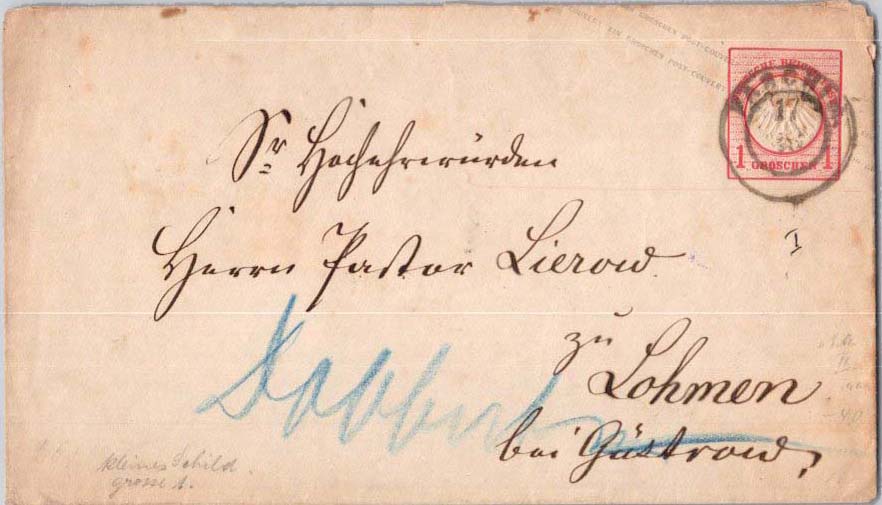 EIN GROSCHEN POST-COUVERT
DEUTSCHE REICHS
1 GROSCHEN 1
17
Sr Hochehrwürden
Herrn Pastor Lierow
zu
Lohmen
bei Güstrow,
I
kleines Schild.
grosse 1.